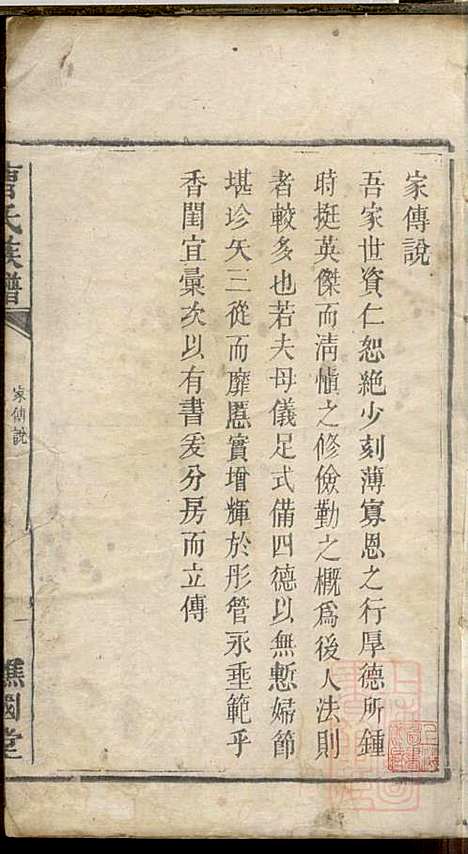 家傳說
吾家世資仁恕絶少刻薄寡恩之行厚德所鍾
時挺英傑而淸愼之修儉勤之概爲後人法則
者較多也若夫母儀足式備四德以無慙婦節
堪珍矢三從而靡慝實增輝於彤管永垂範乎
香閨宜彙次以有書爰分房而立傳
曹氏族譜
家傳說
一
譙國堂